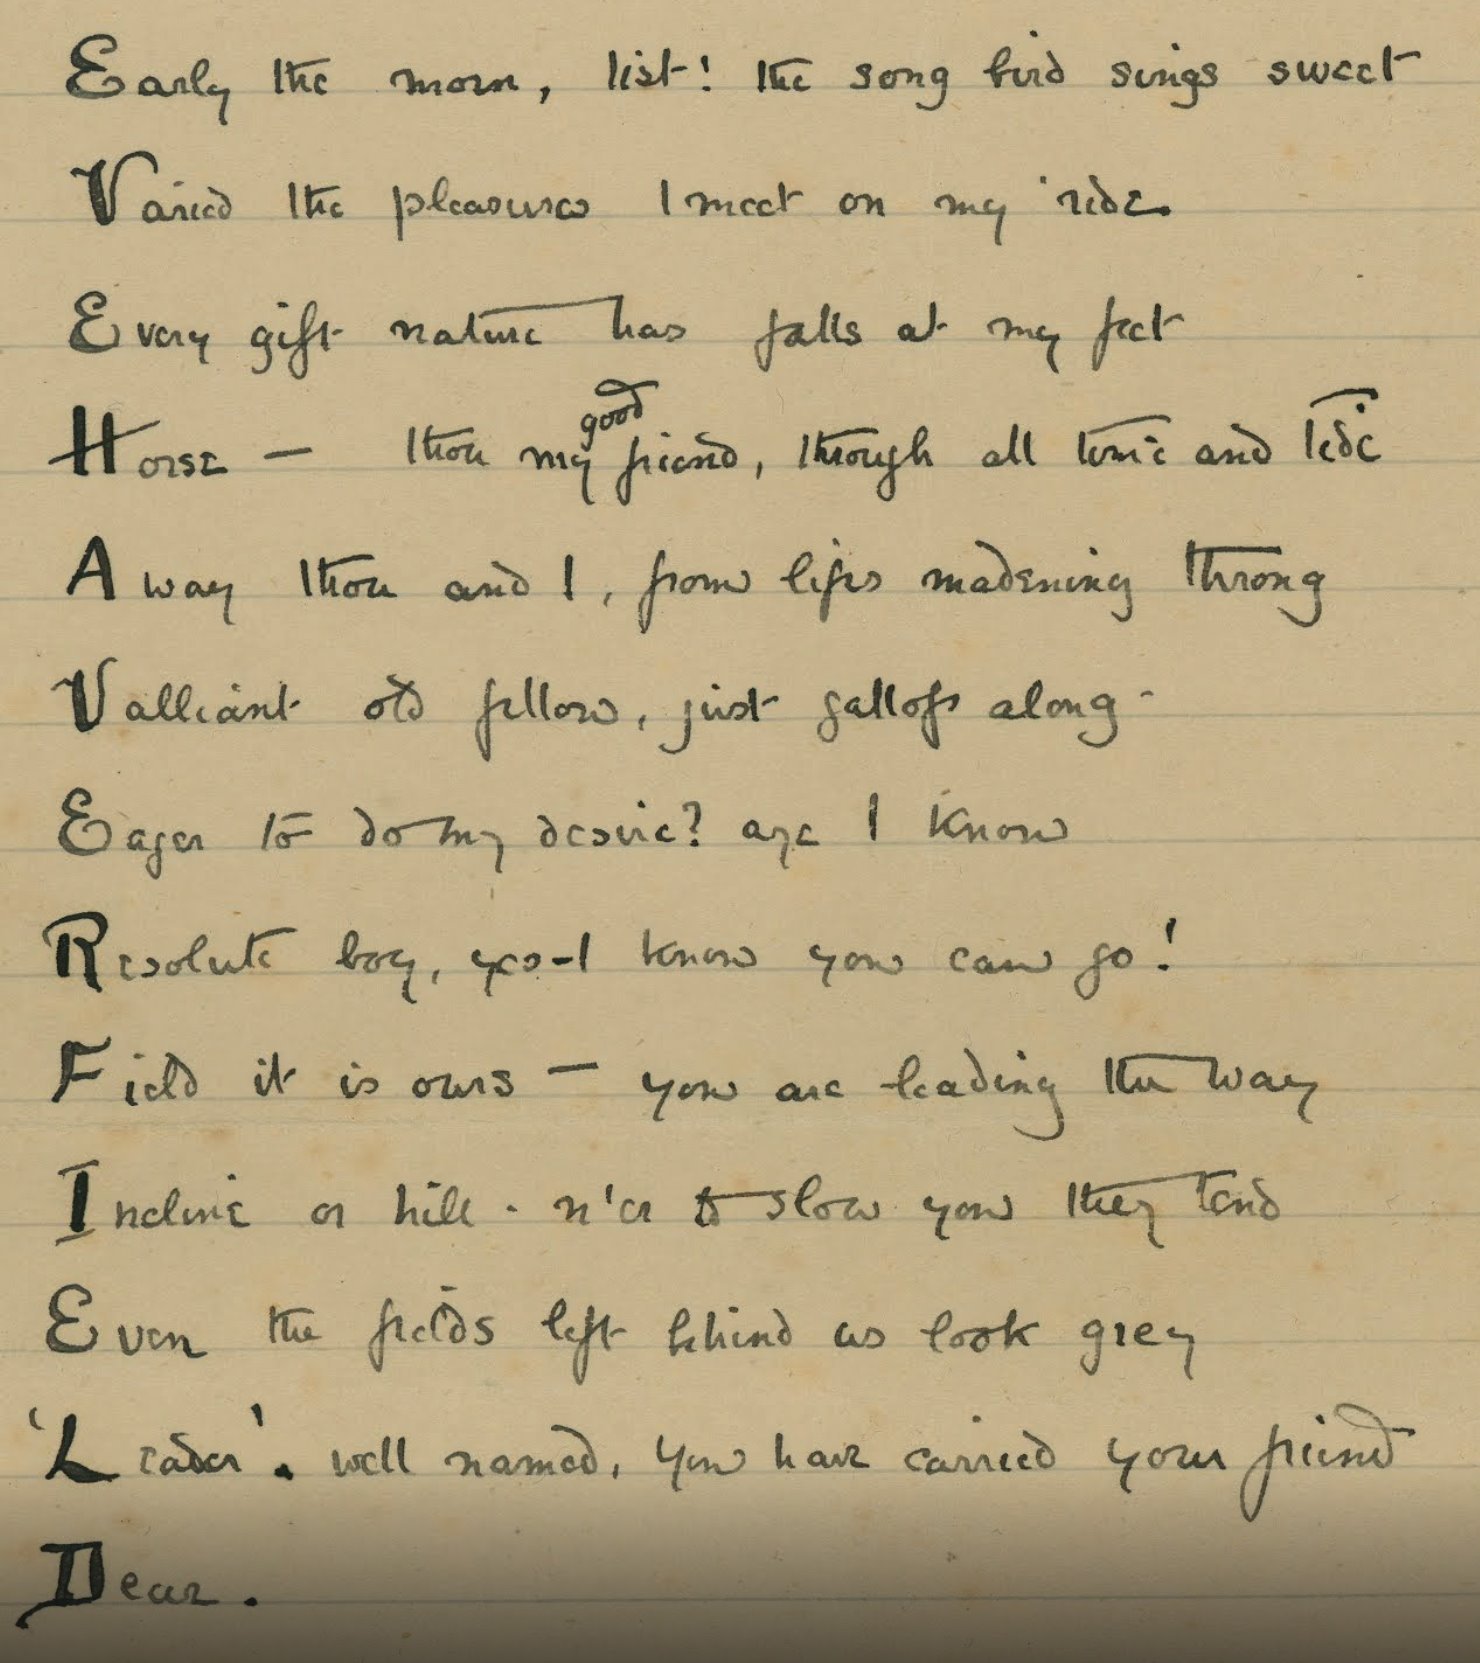 Early the morn, list! the song bird sings sweet
Varied the pleasures I meet on my ride.
Every gift nature has falls at my feet
Horse — thou my good friend, through all time and tide
Away thou and I, from lifes madening throng
Valliant old fellow, just gallops along -
Eager to do my desire? aye I know
Resolute boy, yes - I know you can go!
Field it is ours — you are leading the way
Incline or hill - n'er to slow you they tend
Even the fields left behind us look grey
'Leader'. well named, you have carried your friend
Dear.